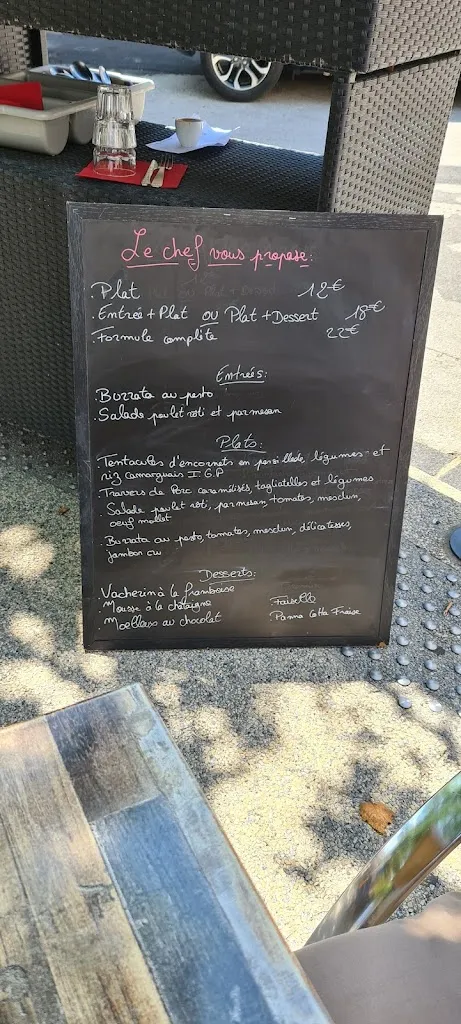 Le chef vous propose:
.Plat 12€
.Entrée+Plat ou Plat+Dessert 18€
.Formule complète 22€
Entrées:
.Burrata au pesto
.Salade poulet roti et parmesan
Plats:
.Tentacules d'encornets en persillade, légumes et
riz camarguais I.G.P
.Travers de Porc caramélisés, tagliatelles et légumes
.Salade poulet rôti, parmesan, tomates, mesclun,
oeuf mollet
.Burrata au pesto, tomates, mesclun, délicatesses,
jambon cru
Desserts:
Vacherin à la framboise
Mousse à la chataigne Faiselle
Moelleux au chocolat Panna Cotta Fraise